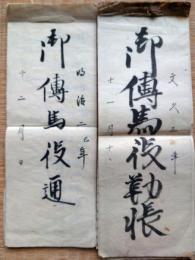 文久 年
御傳馬役勤帳
十一月
明治二 年
御傳馬役通
十二月日